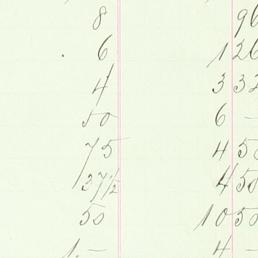 8 96
6 1 26
4 3 32
50 6 –
75 4 50
37½ 4 50
50 10 50
1. – 4 –